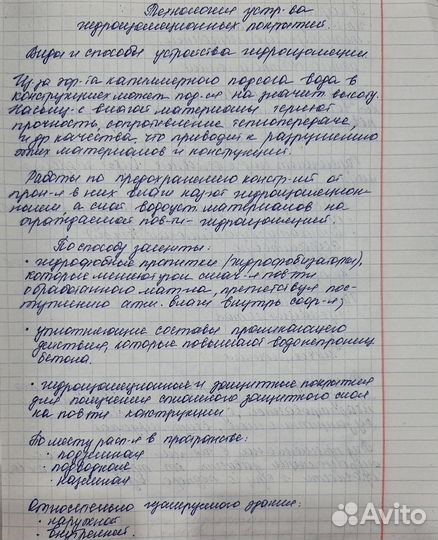 Технология устр-ва
гидроизоляционных покрытий
Виды и способы устройства гидроизоляции
Из-за эф-та капиллярного подсоса вода в
конструкциях может под-ся на значит высоту.
Насыщ-е влагой материалы теряют
прочность, сопротивление теплопередаче,
и др качества, что приводит к разрушению
этих материалов и конструкций.
Работы по предохранению констр-ций от
прон-я в них влаги наз-ют гидроизоляцион-
ными, а слой водоуст. материалов на
ограждаемой пов-ти - гидроизоляцией.
По способу защиты:
• гидрофобные пропитки (гидрофобизаторы),
которые меняют угол смач-я пов-ти
обработанного мат-ла, препятствуя пос-
туплению атм. влаги внутрь соор-я;
• уплотняющие составы проникающего
действия, которые повышают водонепрониц
бетона.
• гидроизоляционные и защитные покрытия
для получения сплошного защитного слоя
на пов-ти конструкции
По месту расп-я в пространстве:
• подземная
• подводная
• наземная
Относительно изолируемого здания:
• наружной
• внутренней.
Avito